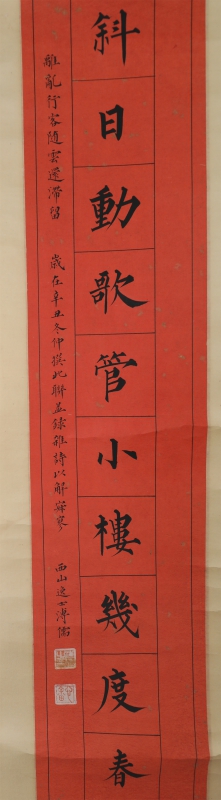 斜日動歌管小樓幾度春
離亂行客隨雲還滯留
歲在辛丑冬仲撰此聯并錄雜詩以解寂寥
西山逸士溥儒